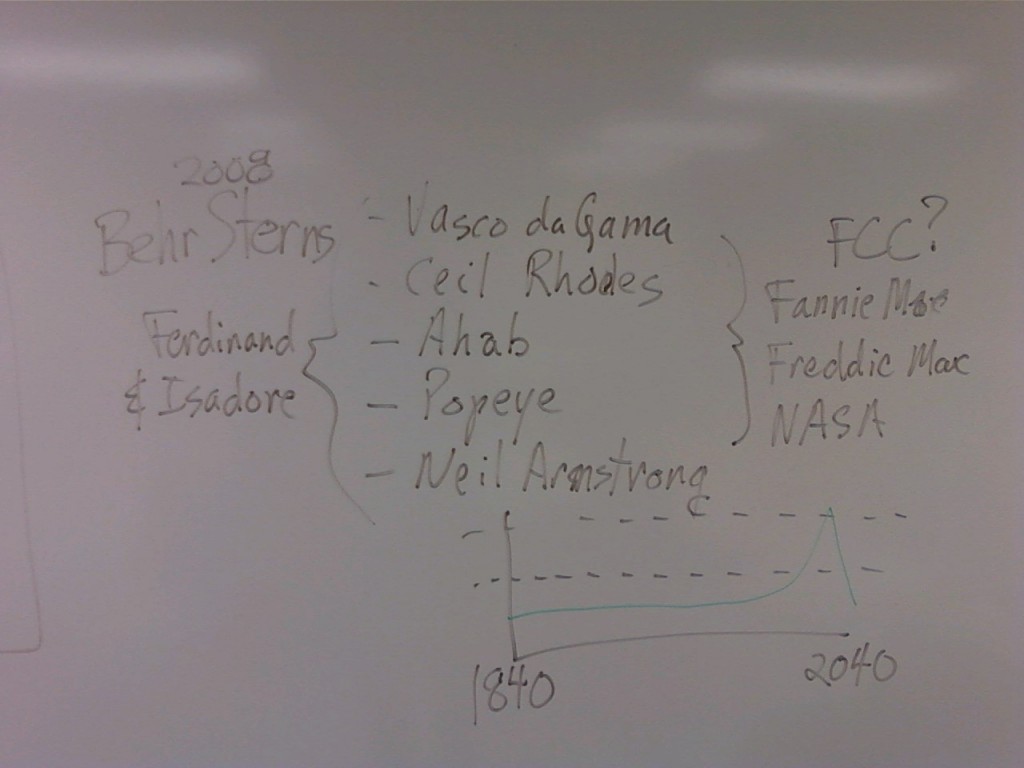 2008
Behr Sterns
Ferdinand
& Isadore
- Vasco da Gama
- Ceil Rhodes
- Ahab
- Popeye
- Neil Armstrong
FCC?
Fannie Mae
Freddie Mac
NASA
1840
2040